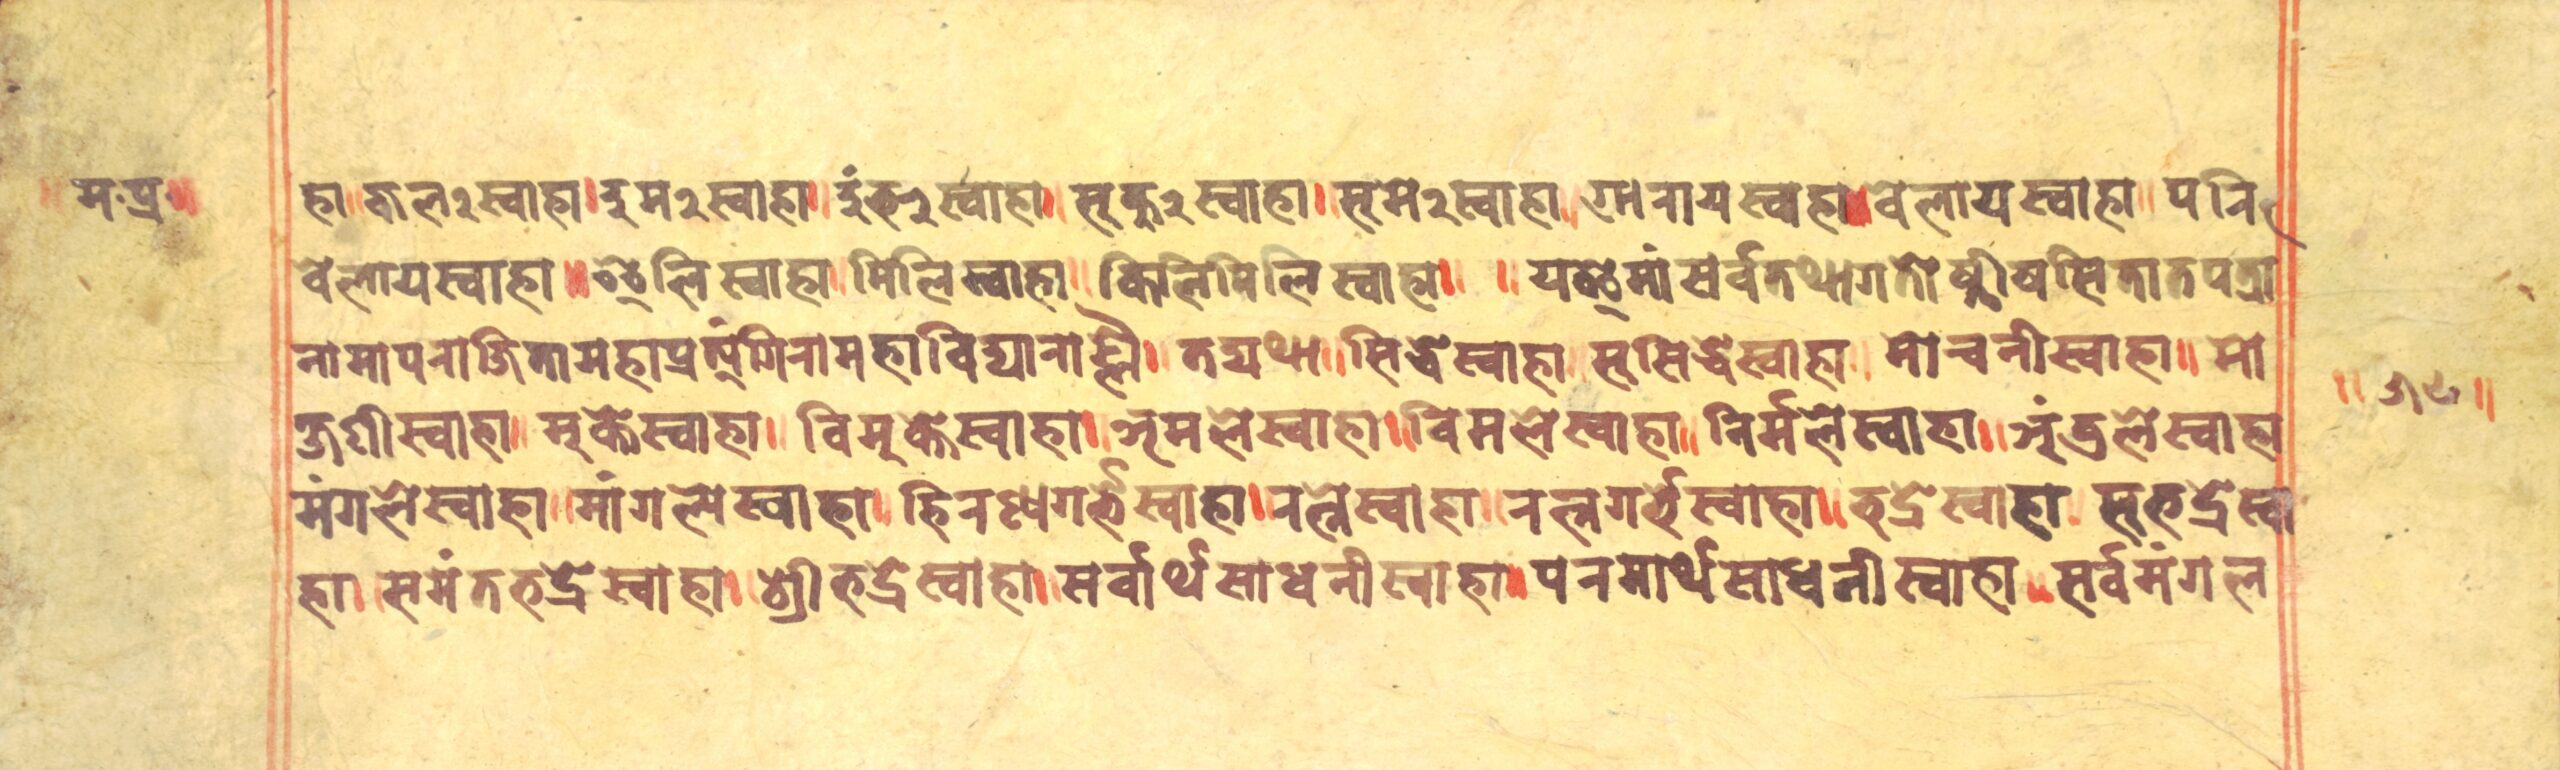 ॥ म·प्र·॥
हा॥ जल२स्वाहा॥ दुम२स्वाहा॥ दुंरु२स्वाहा॥ सुकु२स्वाहा॥ सुमे२स्वाहा॥ गोरायस्वाहा॥ वेलायस्वाहा॥ परि
वेलायस्वाहा॥ चेलिस्वाहा॥ मिलिस्वाहा॥ किलिमिलिस्वाहा॥ ॥ यश्चेमां सर्वतथागतोष्णीषसितातपत्रा
नामापराजितामहाप्रत्यंगिरामहाविद्याराज्ञै॥ तद्यथा॥ सिद्धेस्वाहा॥ सुसिद्धेस्वाहा॥ मोचनीस्वाहा॥ मो
क्षणीस्वाहा॥ मुक्तेस्वाहा॥ विमुक्तेस्वाहा॥ अमलेस्वाहा॥ विमलेस्वाहा॥ निर्मलेस्वाहा॥ अंडलेस्वाहा
मंगलेस्वाहा॥ मांगल्येस्वाहा॥ हिरण्यगर्भेस्वाहा॥ रत्नेस्वाहा॥ रत्नगर्भेस्वाहा॥ भद्रेस्वाहा॥ सुभद्रेस्वा
हा॥ समंतभद्रेस्वाहा॥ श्रीभद्रेस्वाहा॥ सर्वार्थसाधनीस्वाहा॥ परमार्थसाधनीस्वाहा॥ सर्वमंगल